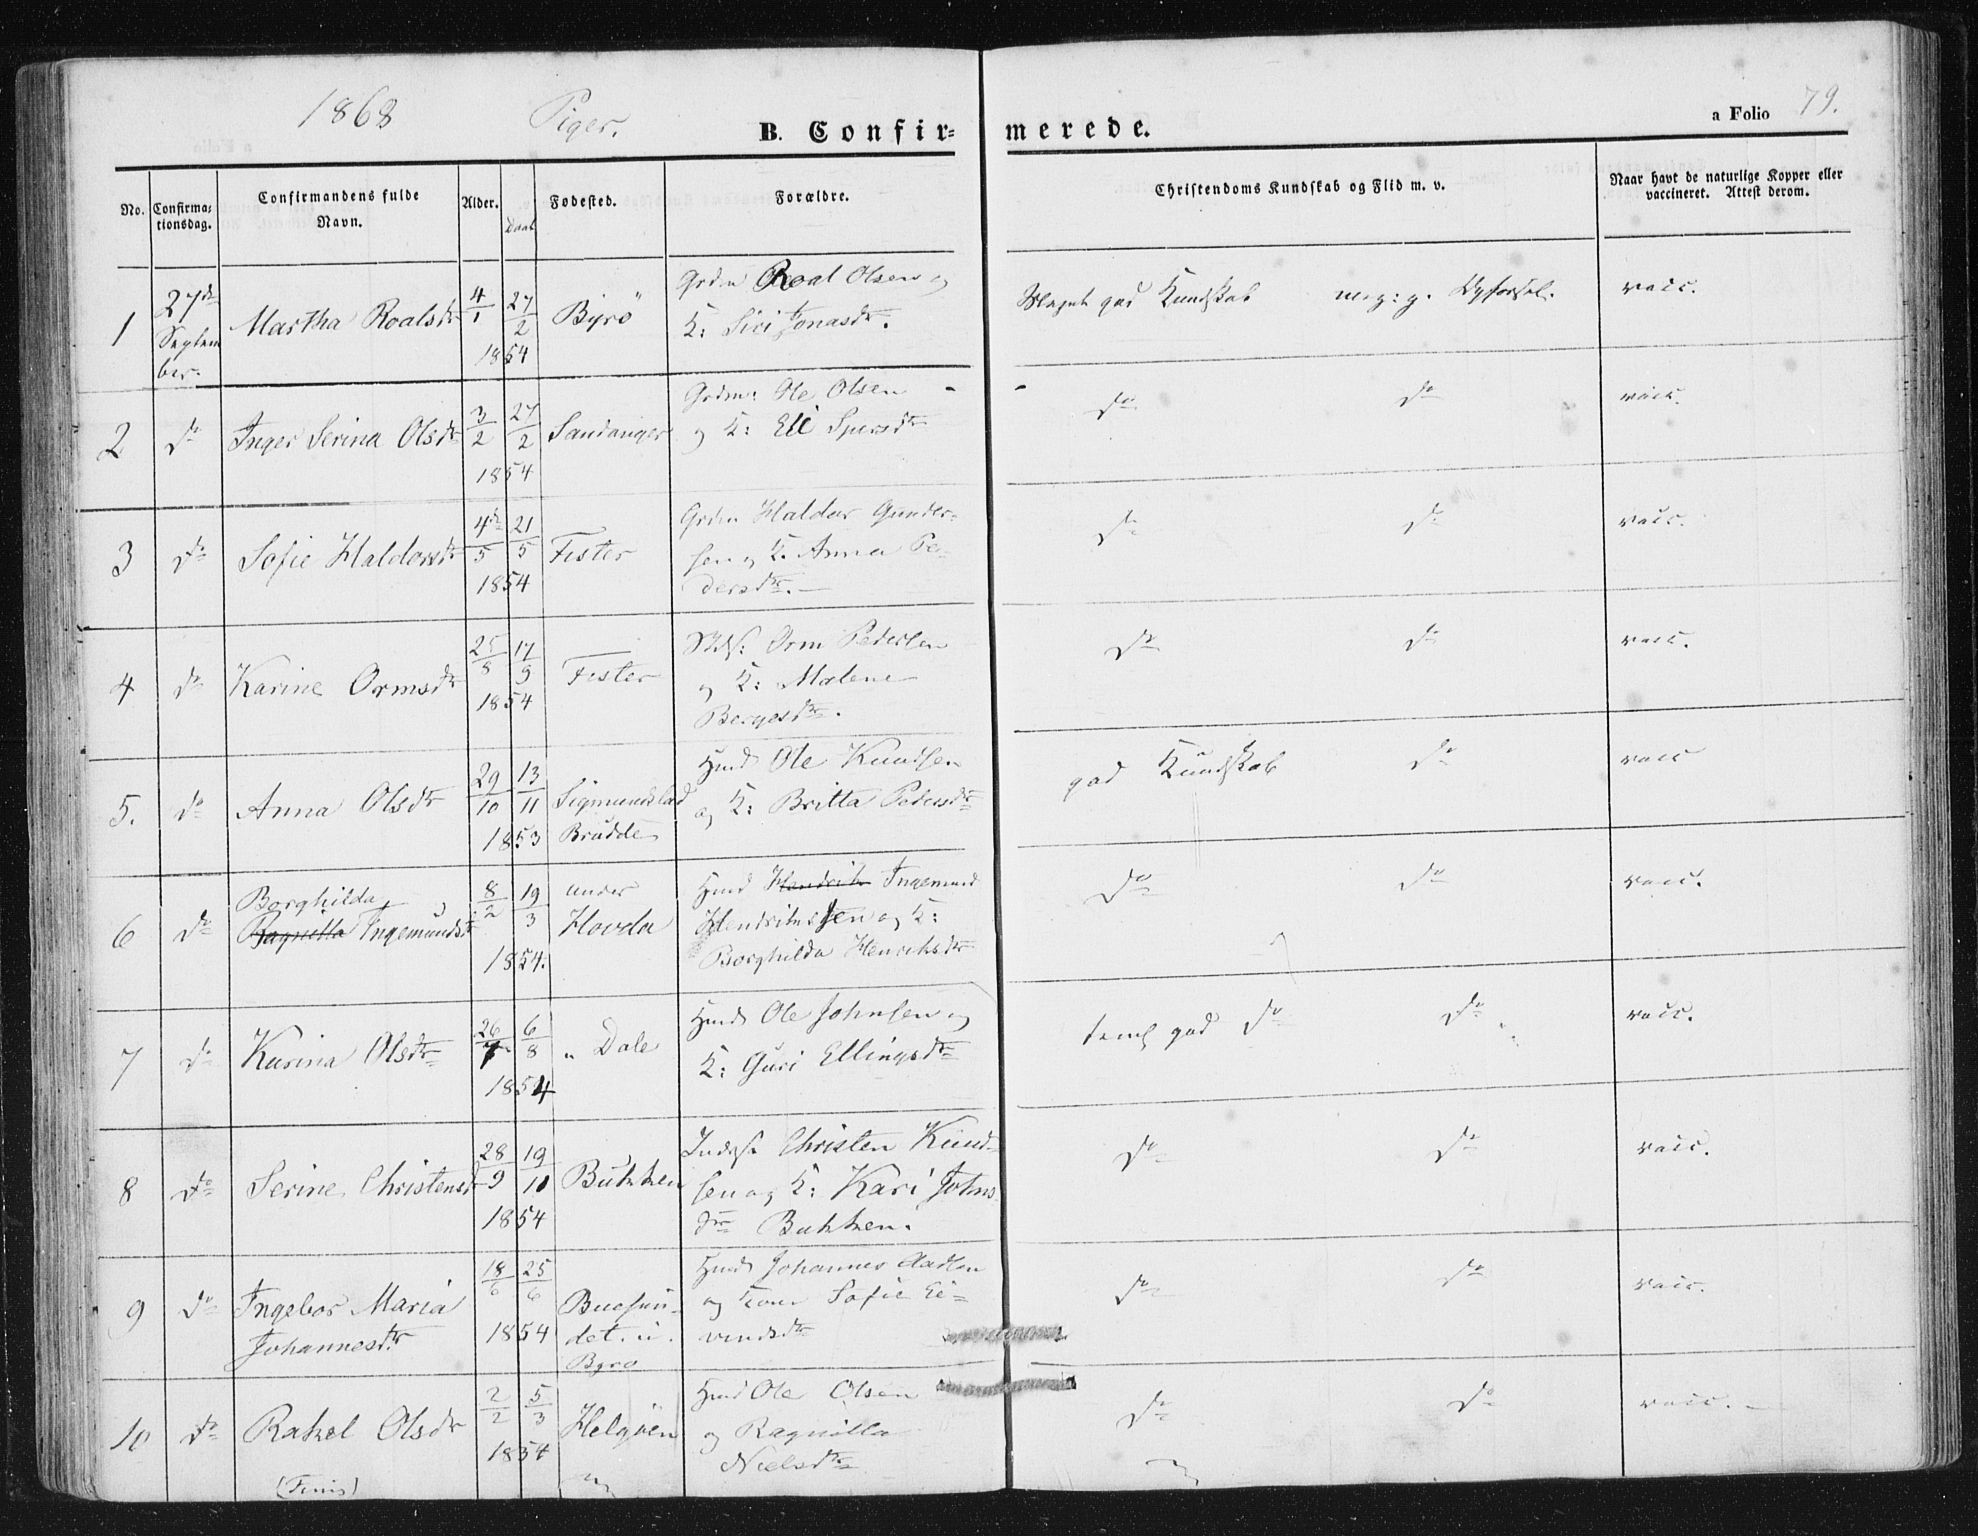 1868 Piger. B. Confir= merede. a Folio 79.
No. Confirma= tionsdag. Confirmandens fulde Navn. Alder. Daab Fødested. Forældre. Christendoms Kundskab og Flid m. v. Naar havt de naturlige Kopper eller vaccineret. Attest derom.
1 27de Septem ber. Martha Roalsdtr 4/1 27/2 1854 Byrø Grdm Roal Olsen og
K: Siri Jonasdtr. Meget god Kundskab meg: g. Opførsel. vacc.
2 do Inger Serina Olsdtr 3/2 27/2 1854 Sandanger Grdm: Ole Olsen
og K: Eli Spersdtr do do vacc.
3 do Sofie Haldorsdtr 4de/5 21/5 1854 Fister Grdm Haldor Gunder=
sen og K. Anna Pe=
dersdtr. do do vacc.
4 do Karine Ormsdtr 25/8 17/9 1854 Fister Orm Pedersen
og K: Malene
Bergesdtr. do do vacc.
5. do Anna Olsdtr 29/10 13/11 1853 Sigmundstad
Brødde Hmd Ole Knudsen
og K: Britta Pedersdtr god Kundskab do vacc
6 do Borghilda
Ragnilla Ingemundsdtr 8/2 19/3 1854. under
Hovda Hmd Hendrik Ingemund
Hendriksen og K:
Borghilda Henriksdtr do do vacc.
7 do Karina Olsdtr 26/7 6/8 1854 " Dale Hmd Ole Johnsen og
K: Guri Ellingsdtr teml god do do vacc.
8 do Serine Christensdtr 28/9 19/10 1854 Bukken Inders Christen Knud=
sen og K: Kari Johns
dtr Bukken. do do vacc.
9 do Ingebor Maria
Johannesdtr 18/6 25/6 1854 Buesun=
det. u.
Byrø Hmd Johannes Aadsen
og Kone Sofie Ei=
vindsdtr do do vacc.
10 do Rakel Olsdtr 2/2 5/3 1854 Helgøen Hmd Ole Olsen
og Ragnilla
Nielsdtr do do vacc.
(Finis)